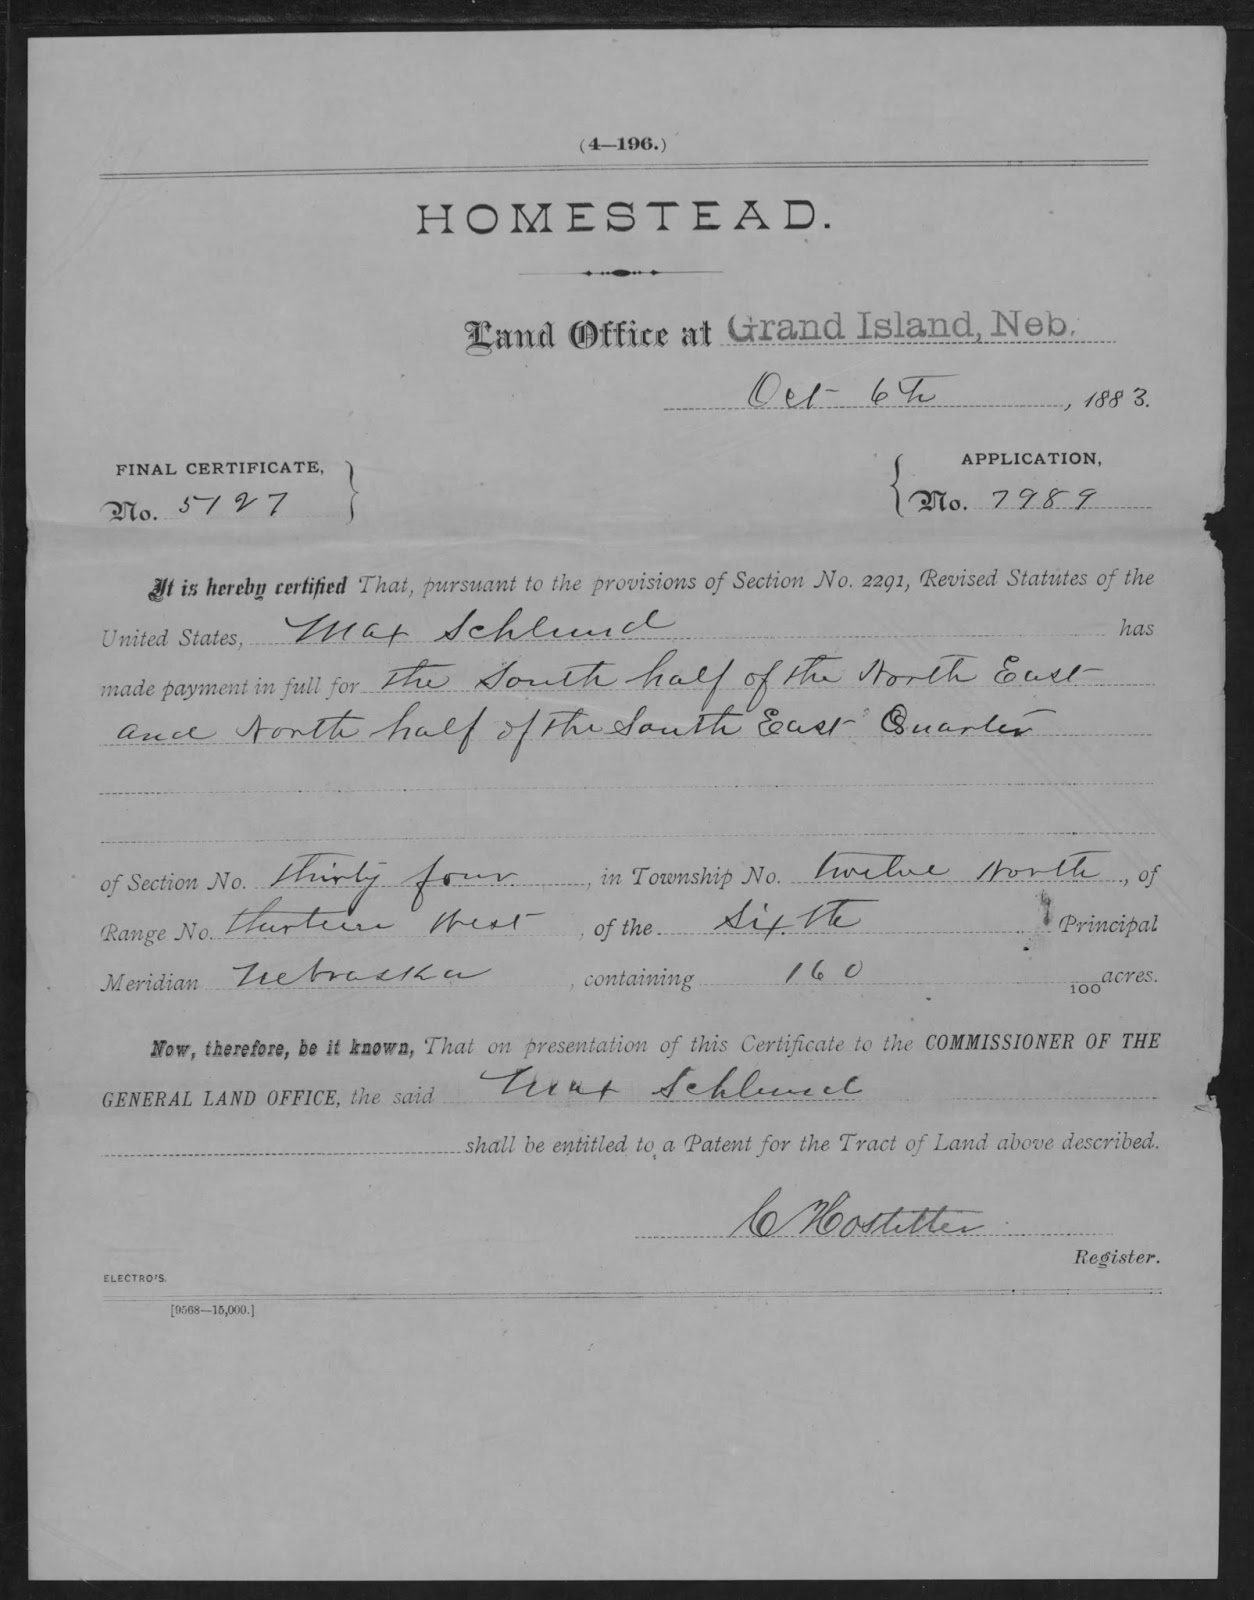 (4—196.)
HOMESTEAD.
Land Office at Grand Island, Neb.
Oct 6th, 1883.
FINAL CERTIFICATE, No. 5127
APPLICATION, No. 7989
It is hereby certified That, pursuant to the provisions of Section No. 2291, Revised Statutes of the
United States, Max Schlund has
made payment in full for the South half of the North East
and North half of the South East Quarter
of Section No. thirty four, in Township No. twelve North, of
Range No. thirteen West, of the Sixth Principal
Meridian Nebraska, containing 160 /100 acres.
Now, therefore, be it known, That on presentation of this Certificate to the COMMISSIONER OF THE
GENERAL LAND OFFICE, the said Max Schlund
shall be entitled to a Patent for the Tract of Land above described.
C Hostetter
Register.
ELECTRO'S.
[9568—15,000.]